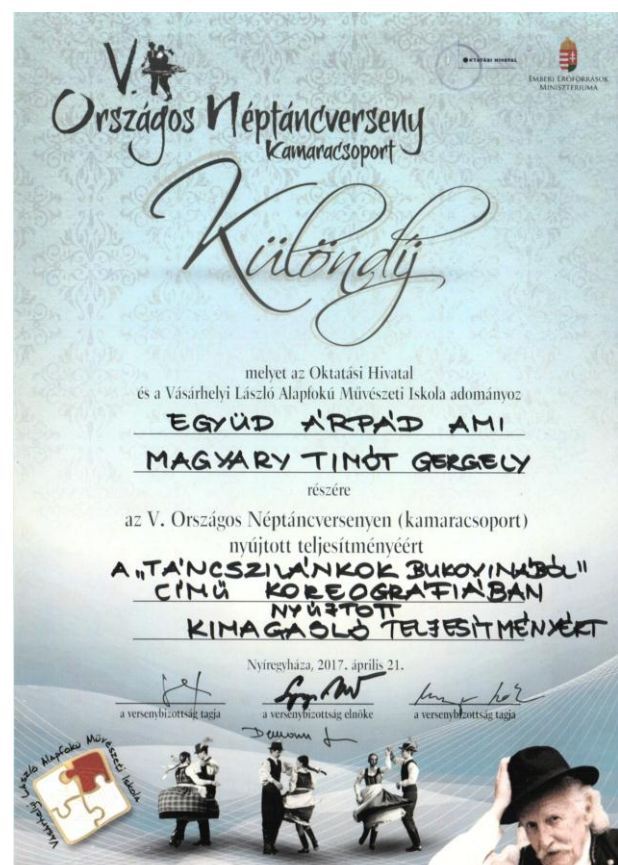 V.
Országos Néptáncverseny
Kamaracsoport
OKTATÁSI HIVATAL
EMBERI ERŐFORRÁSOK
MINISZTÉRIUMA
Különdíj
melyet az Oktatási Hivatal
és a Vásárhelyi László Alapfokú Művészeti Iskola adományoz
EGYÜD ÁRPÁD AMI
MAGYARY TIMÓT GERGELY
részére
az V. Országos Néptáncversenyen (kamaracsoport)
nyújtott teljesítményéért
A „TÁNCSZILÁNKOK BUKOVINÁBÓL"
CÍMŰ KOREOGRÁFIÁBAN
NYÚJTOTT
KIMAGASLÓ TELJESÍTMÉNYÉRT
Nyíregyháza, 2017. április 21.
a versenybizottság tagja
a versenybizottság elnöke
a versenybizottság tagja
Vásárhelyi László Alapfokú Művészeti Iskola